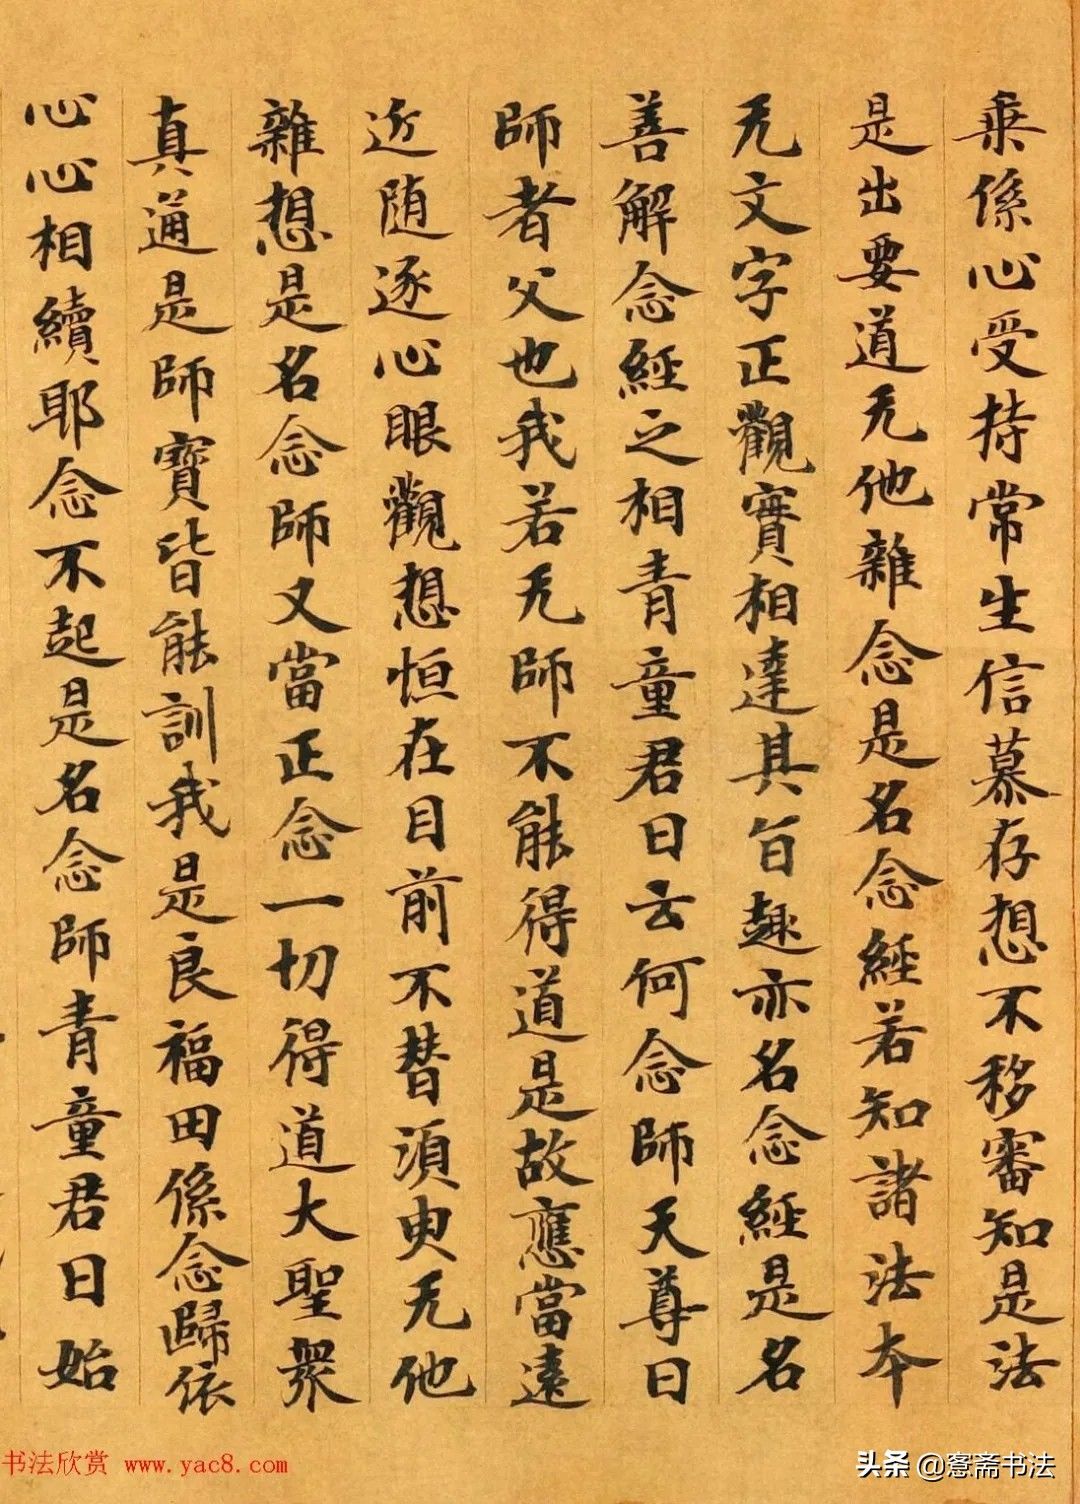 乗係心受持常生信慕存想不移審知是法
是出要道无他雜念是名念經若知諸法本
无文字正觀實相達其旨趣亦名念經是名
善解念經之相青童君曰云何念師天尊曰
師者父也我若无師不能得道是故應當遠
近随逐心眼觀想恒在目前不替須臾无他
雜想是名念師又當正念一切得道大聖衆
真通是師寶皆能訓我是良福田係念歸依
心心相續耶念不起是名念師青童君曰始
书法欣赏 www.yac8.com
头条 @窓斋书法